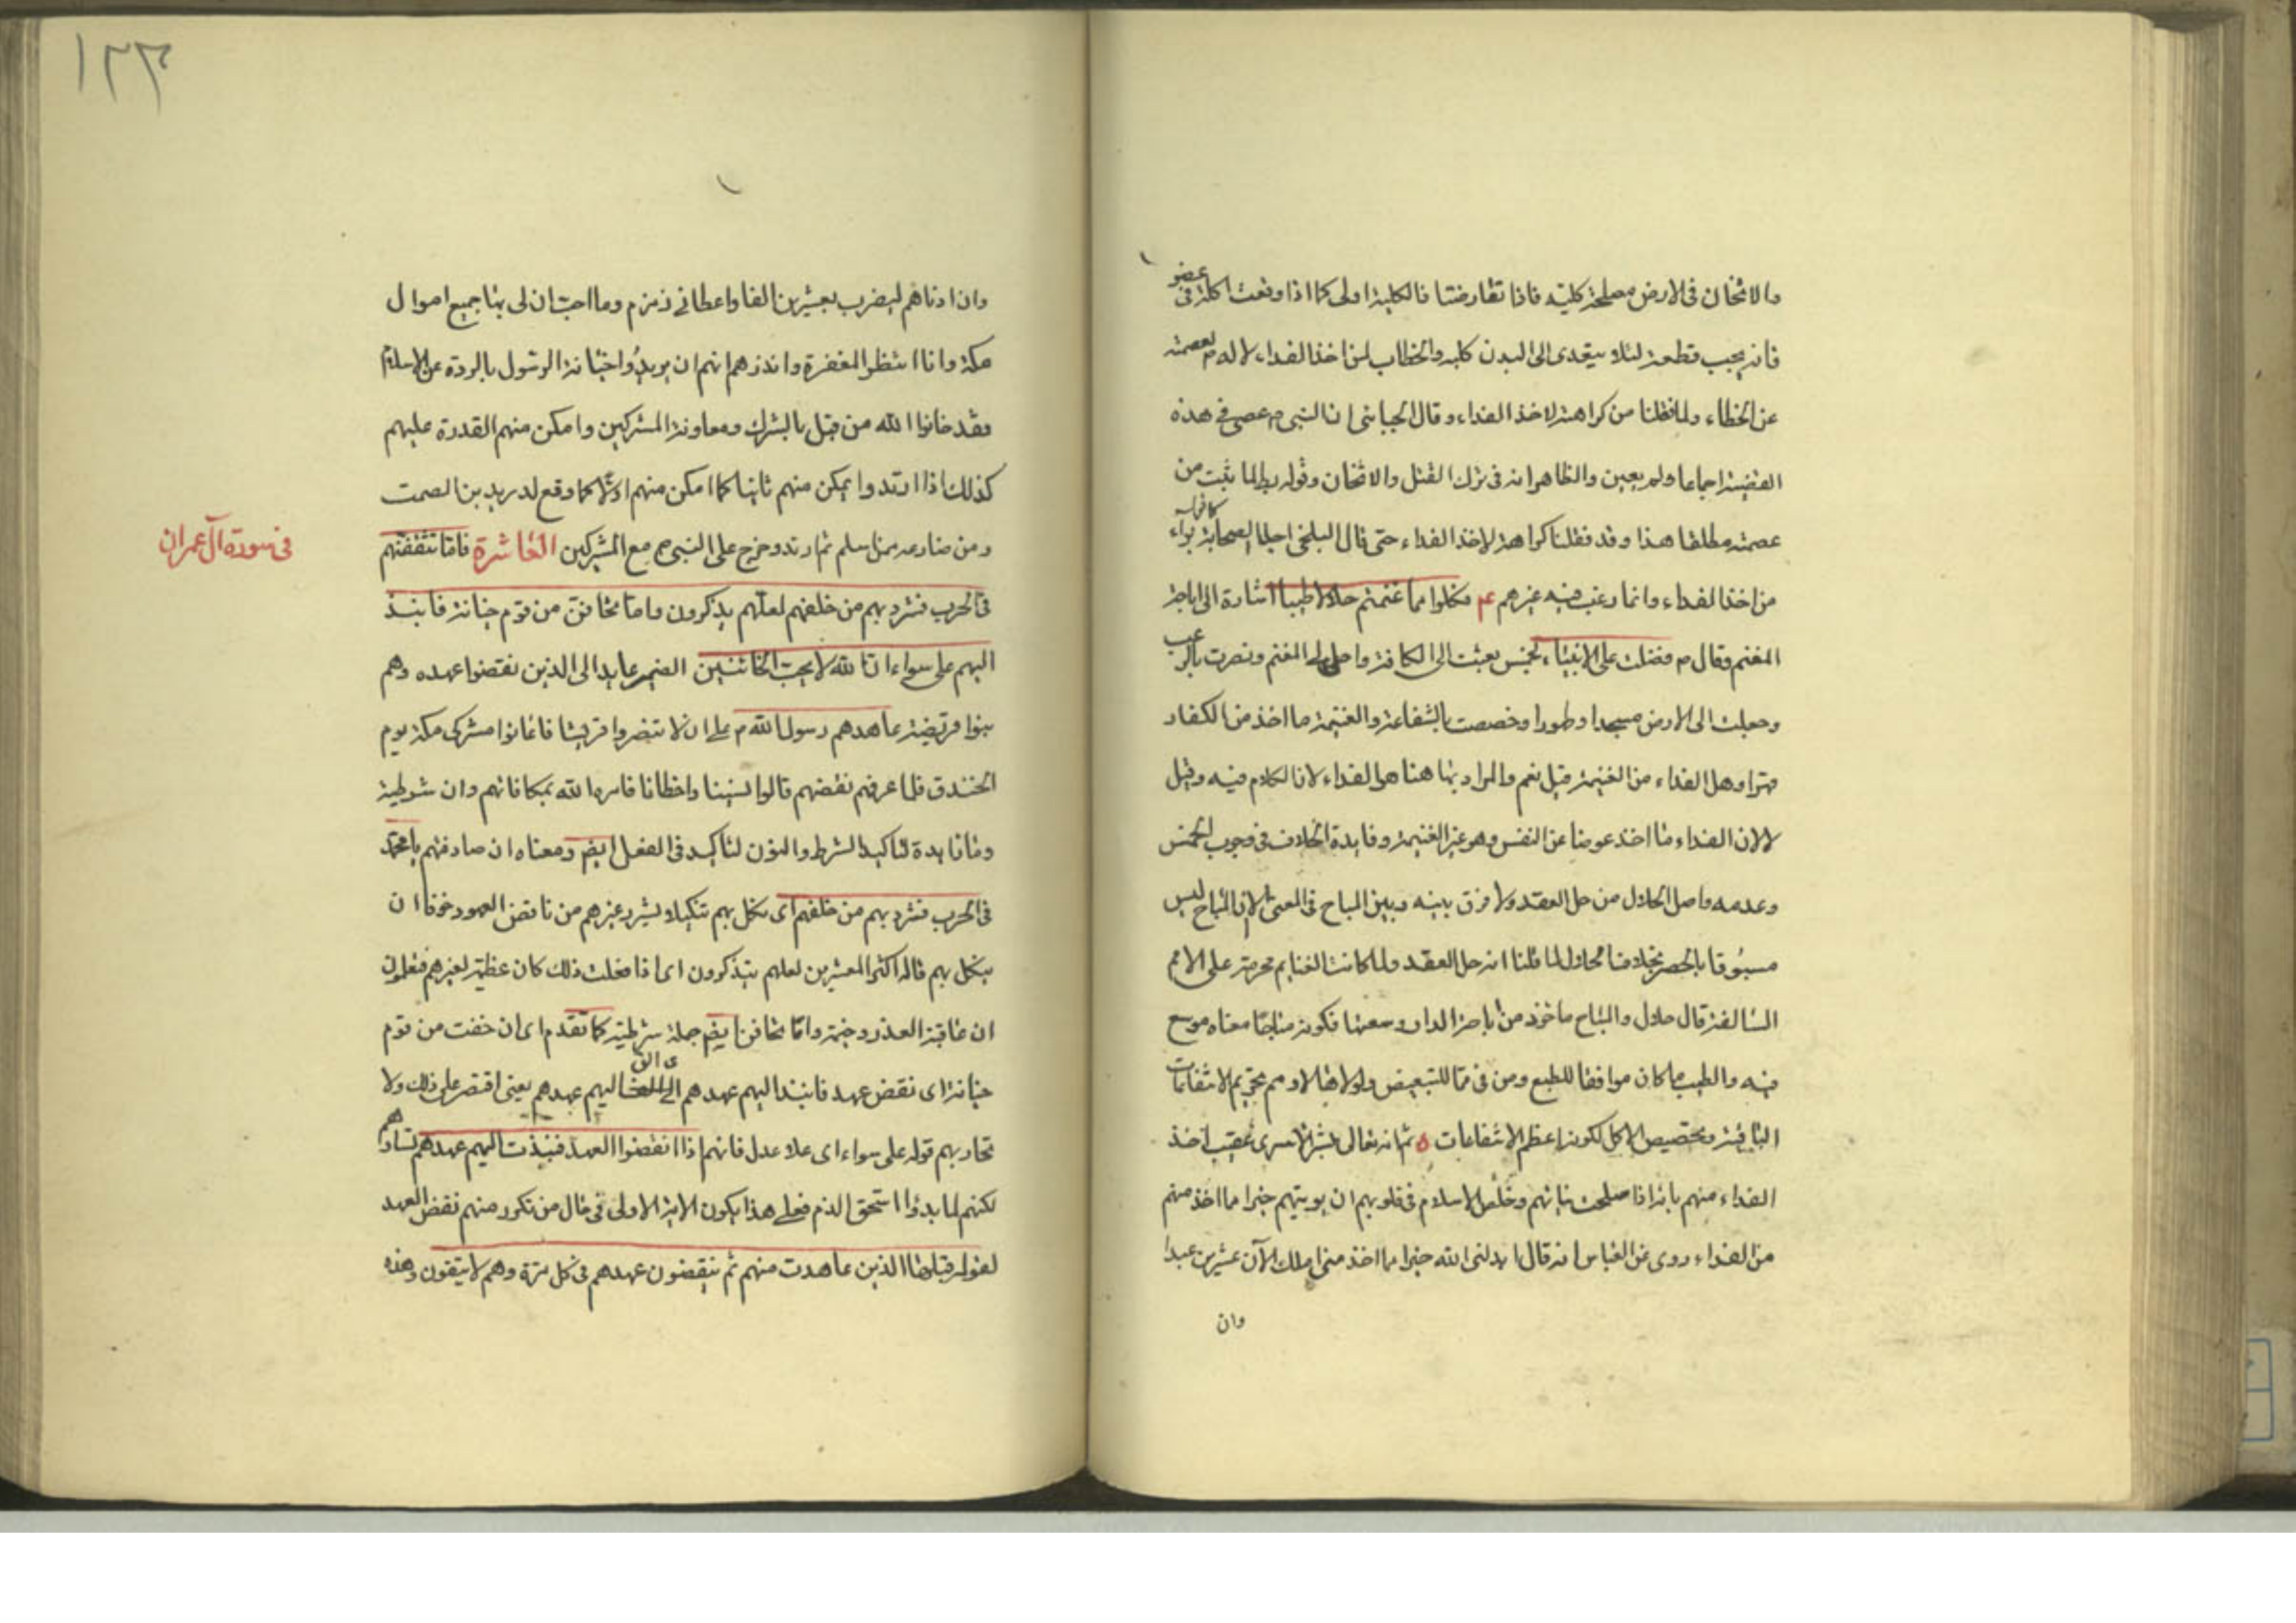 والاثخان فى الارض مصلحة كلية فاذا تعارضتا فالكلية اولى كما اذا وقعت اكلة فى عضو
فانه يجب قطعه لئلا يتعدى الى البدن كله والخطاب لمن اخذ الفداء لا له م لعصمته
عن الخطاء ولما نقلنا من كراهته لاخذ الفداء وقال الجبائى ان النبى م عصى فى هذه
القضية اجماعا ولم يعين والظاهر انه فى ترك القتل والاثخان وقوله بط لما ثبت من
عصمته مطلقا هذا وقد نقلنا كراهته لاخذ الفداء حتى قال البلخى اجلاء الصحابة براء
من اخذ الفداء وانما رغب فيه غيرهم فكلوا مما غنمتم حلالا طيبا اشارة الى اباحة
المغنم وقال م فضلت على الانبياء بخمس بعثت الى الكافة واحل لى المغنم ونصرت بالرعب
وجعلت الى الارض مسجدا وطهورا وخصصت بالشفاعة والغنيمة ما اخذ من الكفار
قهرا وهل الفداء من الغنيمة قيل نعم والمراد بها هنا هو الفداء لان الكلام فيه وقيل
لا لان الفداء ما اخذ عوضا عن النفس وهو غير الغنيمة وفايدة الخلاف فى وجوب الخمس
وعدمه واصل الحلال من حل العقد ولا فرق بينه وبين المباح فى المعنى الا ان المباح ليس
مسبوقا بالحصر بخلاف الحلال لما قلنا انه حل العقد ولما كانت الغنايم محرمة على الامم
السالفة قال حلال والمباح ماخوذ من باحة الدار وسعتها فكونه مباحا معناه موسع
فيه والطيب ما كان موافقا للطبع ومن فى مما للتبعيض
الباقية وتخصيص الاكل لكونه اعظم الانتفاعات ثم انه تعالى بشر الاسرى عقيب اخذ
الفداء منهم بانه اذا صلحت نياتهم وخلص الاسلام فى قلوبهم ان يوتيهم خيرا مما اخذ منهم
من الفداء روى عن العباس انه قال ابدلنى الله خيرا مما اخذ منى املك الآن عشرين عبدا
وان
١٣٣
وان ادناهم ليضرب بعشرين الفا واعطانى زمزم وما احب ان لى بها جميع اموال
مكة وانا انتظر المغفرة وانذرهم انهم ان يريدوا خيانة الرسول بالردة عن الاسلام
فقد خانوا الله من قبل بالشرك ومعاونة المشركين وامكن منهم القدرة عليهم
كذلك اذا ارتدوا يمكن منهم ثانيا كما امكن منهم اولا كما وقع لدريد بن الصمت
ومن ضارعه ممن اسلم ثم ارتد وخرج على النبى م مع المشركين العاشرة فاما تثقفنهم
فى سورة آل عمران
فى الحرب فشرد بهم من خلفهم لعلهم يذكرون واما تخافن من قوم خيانة فانبذ
اليهم على سواء ان الله لا يحب الخائنين الضمير عايد الى الذين نقضوا عهده وهم
بنوا قريضة عاهدهم رسول الله م على ان لا تنصروا قريشا فاعانوا مشركى مكة يوم
الخندق فلما عرفهم نقضهم قالوا نسينا واخطانا فامره الله بمكافاتهم وان شرطية
وما فايدة لتاكيد الشرط والنون لتاكيد فى الفعل ايض ومعناه ان صادفتهم يا محمد
فى الحرب فشرد بهم من خلفهم اى نكل بهم تنكيلا يشرد غيرهم من ناقض العهود خوفا ان
ينكل بهم قاله اكثر المفسرين لعلهم يتذكرون اى اذا فعلت ذلك كان عظة لغيرهم فيعلمون
ان عاقبة الغدر وخيمة واما تخافن ايض جملة شرطية كما تقدم اى ان خفت من قوم
خيانة اى نقض عهد فانبذ اليهم عهدهم اى الق اليهم عهدهم يعنى اقتصر على ذلك ولا
تحاربهم قوله على سواء اى على عدل فانهم اذا نقضوا العهد فنبذت اليهم عهدهم تساواهم
لكنهم لما بدؤا استحق الذم فعلى هذا يكون الاية الاولى فى قتال من تكرر منهم نقض العهد
لقوله قبلها الذين عاهدت منهم ثم ينقضون عهدهم فى كل مرة وهم لا يتقون وهذه